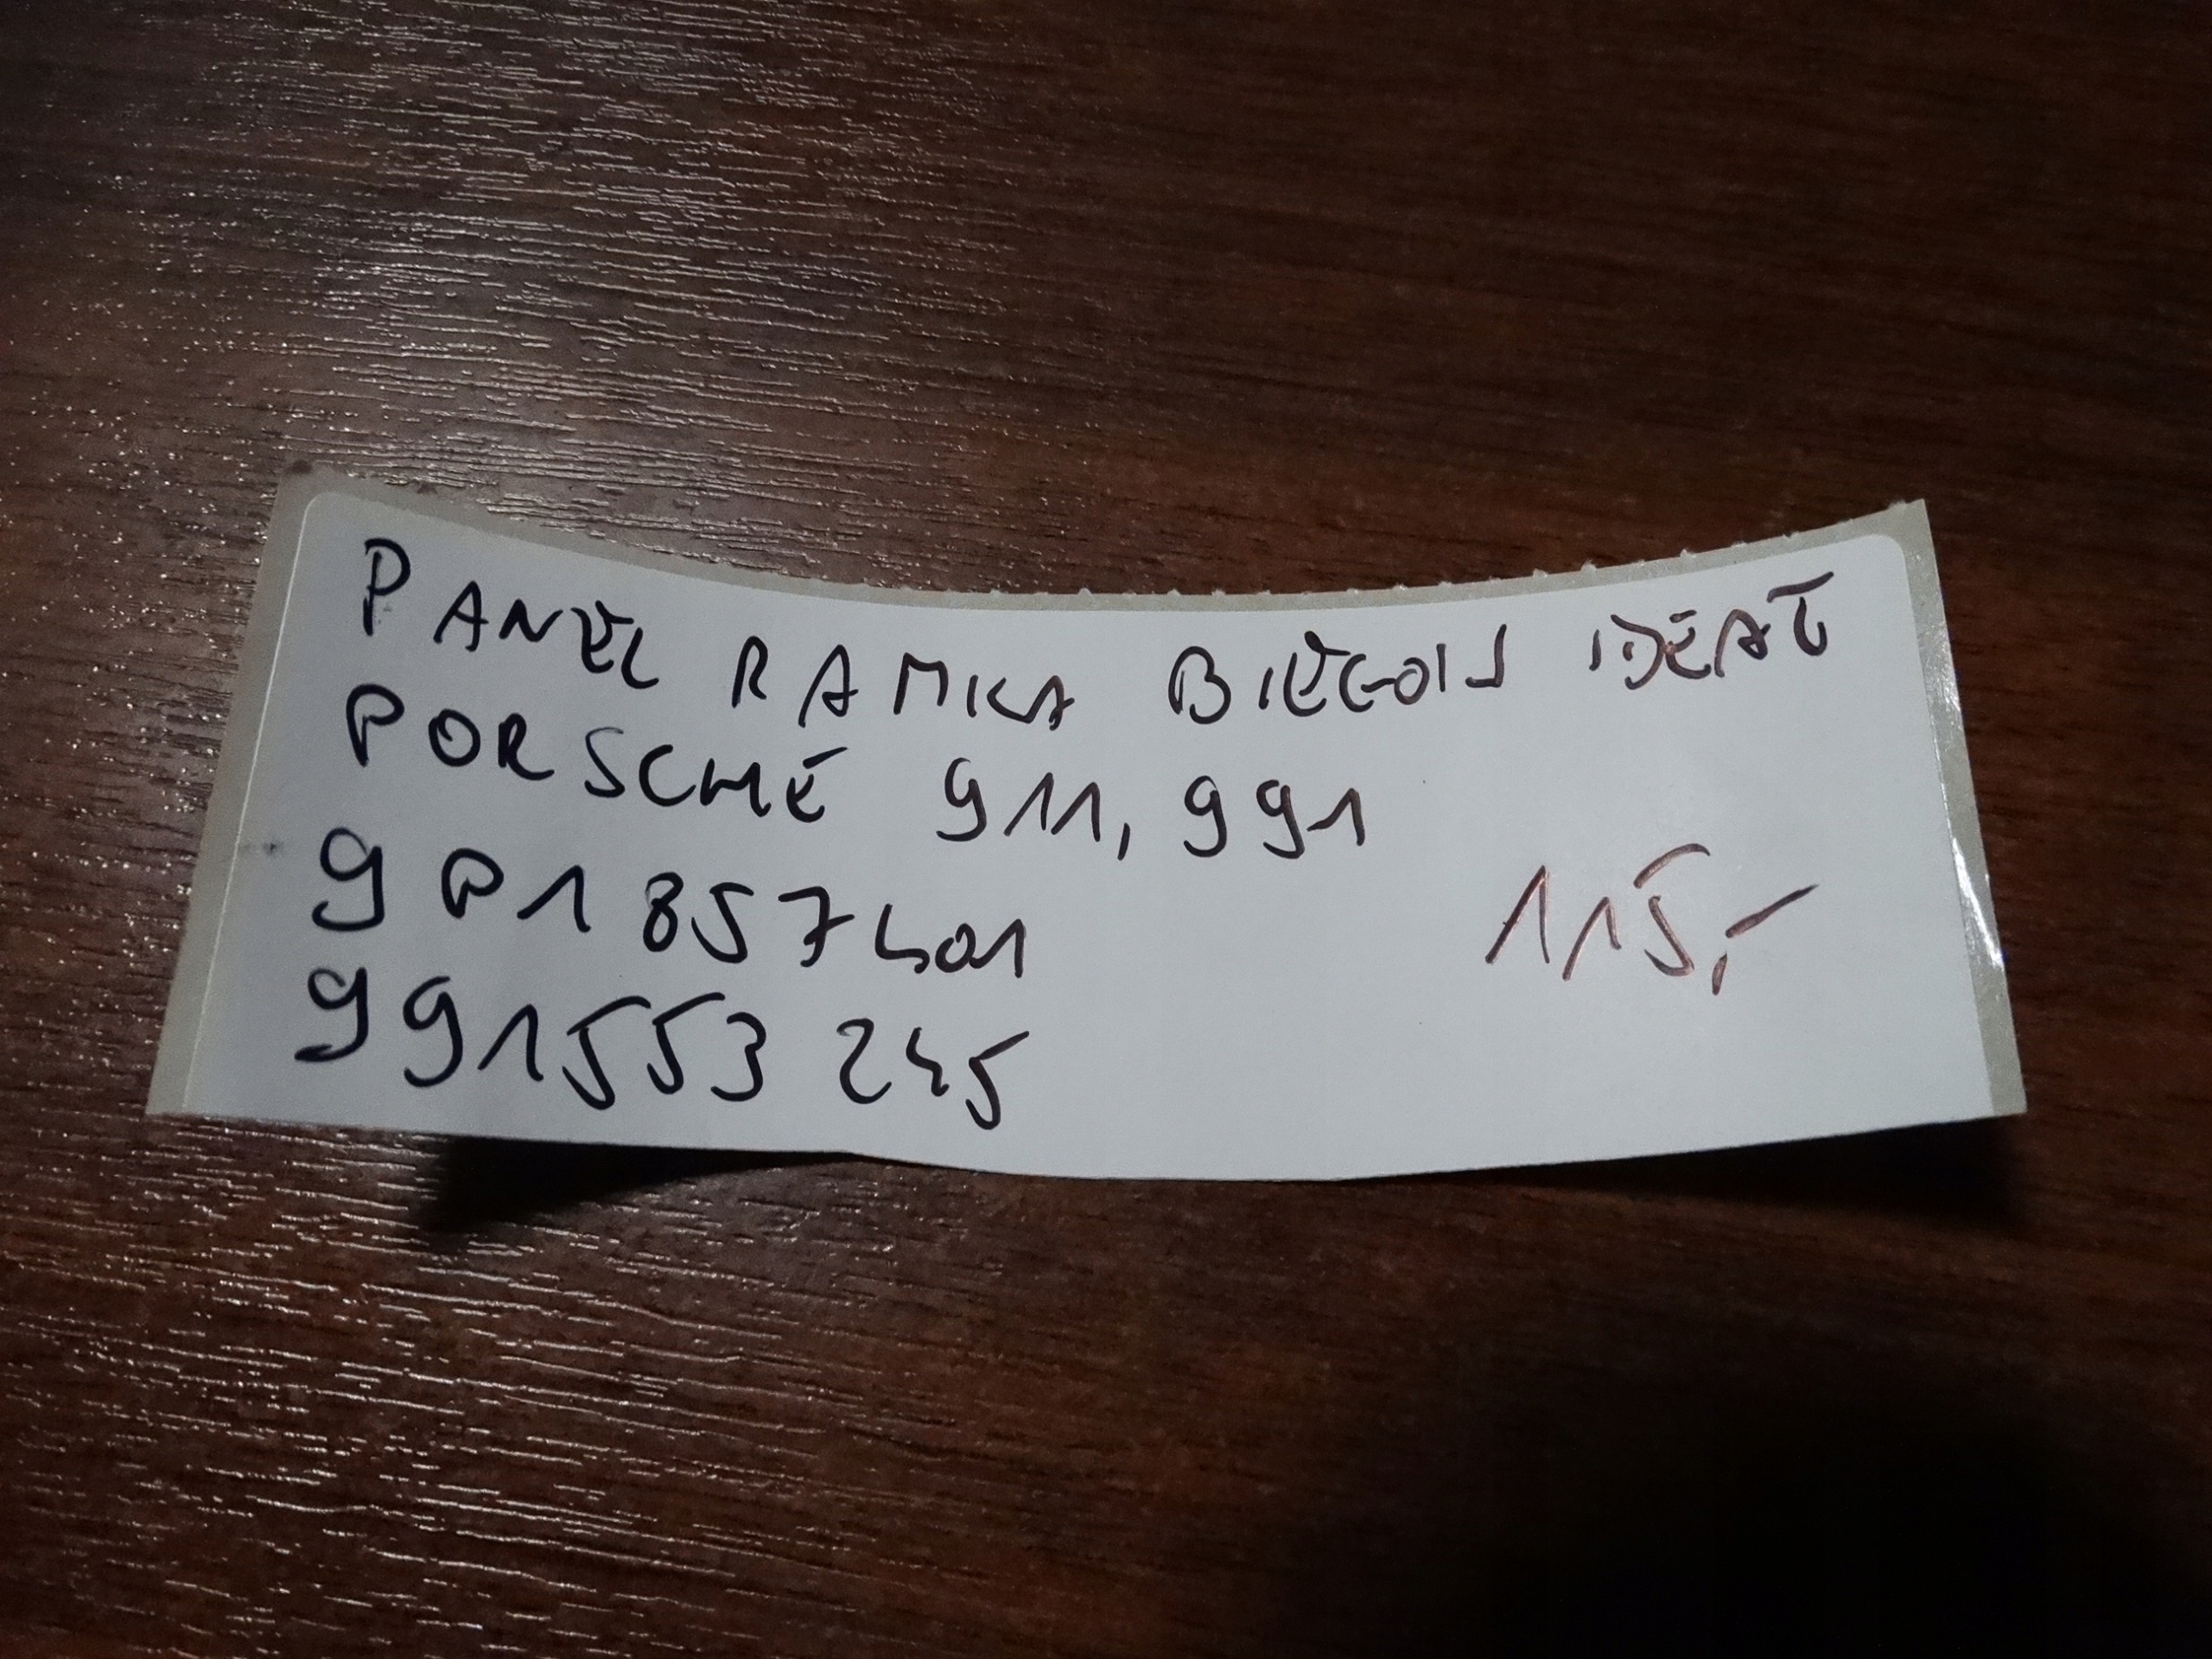 PANEL RAMKA BIEGÓW IDEAŁ
PORSCHE 911, 991
9P1 857 401
991 553 245
115,-